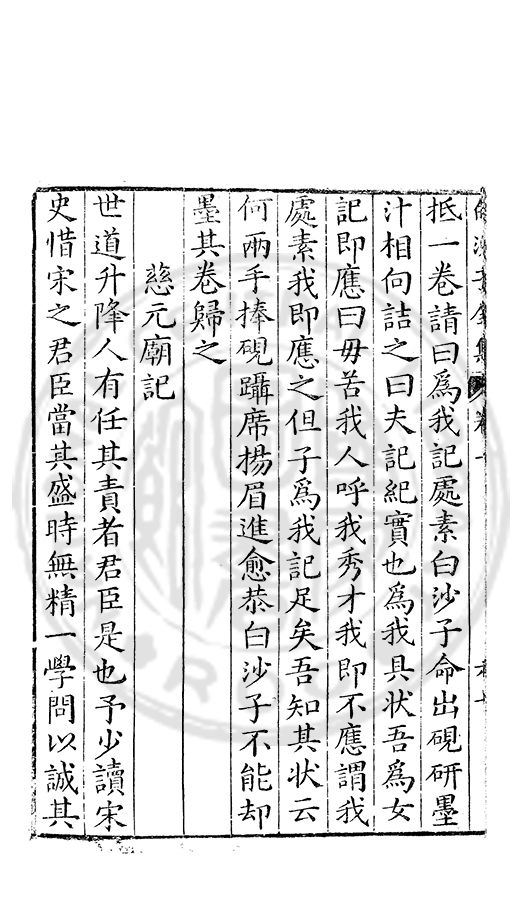 抵一卷請曰爲我記處素白沙子命出硯研墨
汁相向詰之曰夫記紀實也爲我具状吾爲女
記即應曰毋苦我人呼我秀才我即不應謂我
處素我即應之但子爲我記足矣吾知其状云
何兩手捧硯躡席揚眉進愈恭白沙子不能却
墨其卷歸之
慈元廟記
世道升降人有任其責者君臣是也予少讀宋
史惜宋之君臣當其盛時無精一學問以誠其